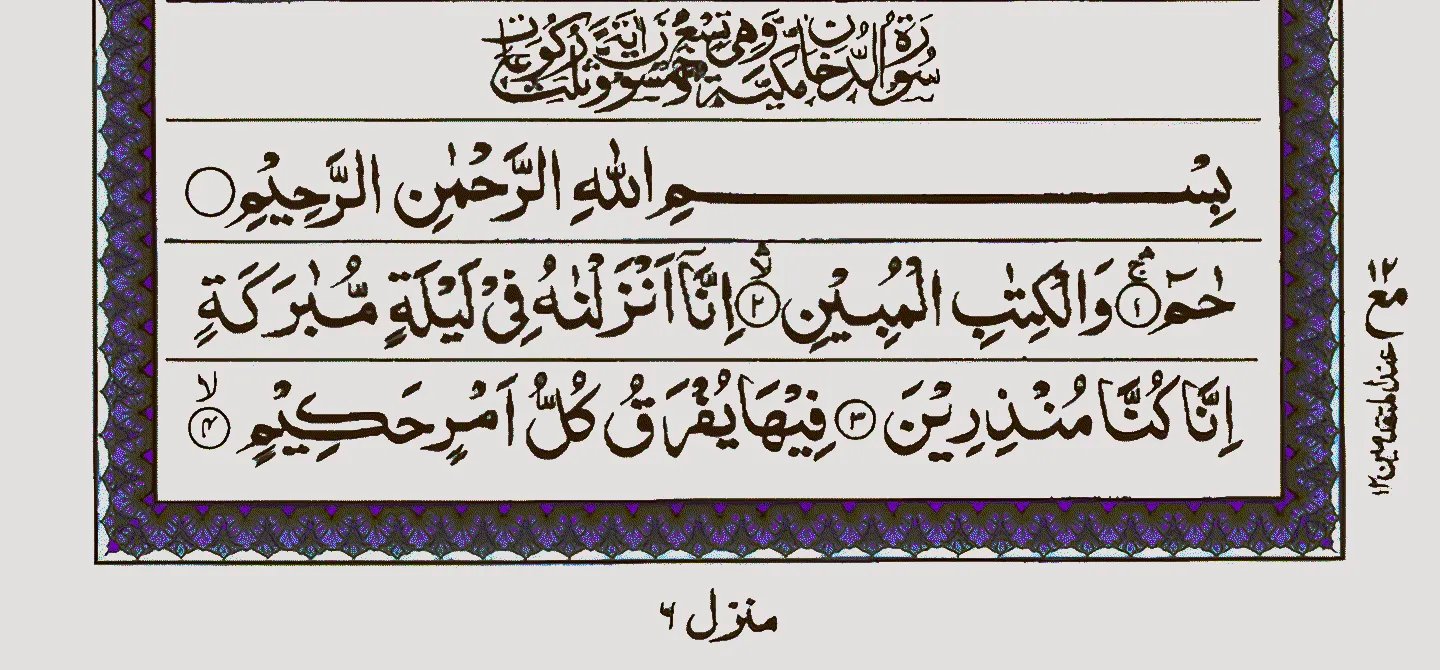 سورة الدخان مكية وهي تسع وخمسون اية وثلث ركوعات
بِسْمِ اللّٰهِ الرَّحْمٰنِ الرَّحِيْمِ
حٰمٓ ۚۛ ﴿۱﴾ وَالْكِتٰبِ الْمُبِيْنِ ۙۛ ﴿۲﴾ اِنَّاۤ اَنْزَلْنٰهُ فِیْ لَيْلَةٍ مُّبٰرَكَةٍ
اِنَّا كُنَّا مُنْذِرِيْنَ ﴿۳﴾ فِيْهَا يُفْرَقُ كُلُّ اَمْرٍ حَكِيْمٍ ۙ ﴿۴﴾
مع ۱۲
عند المتقدمين ۱۲
منزل ۶